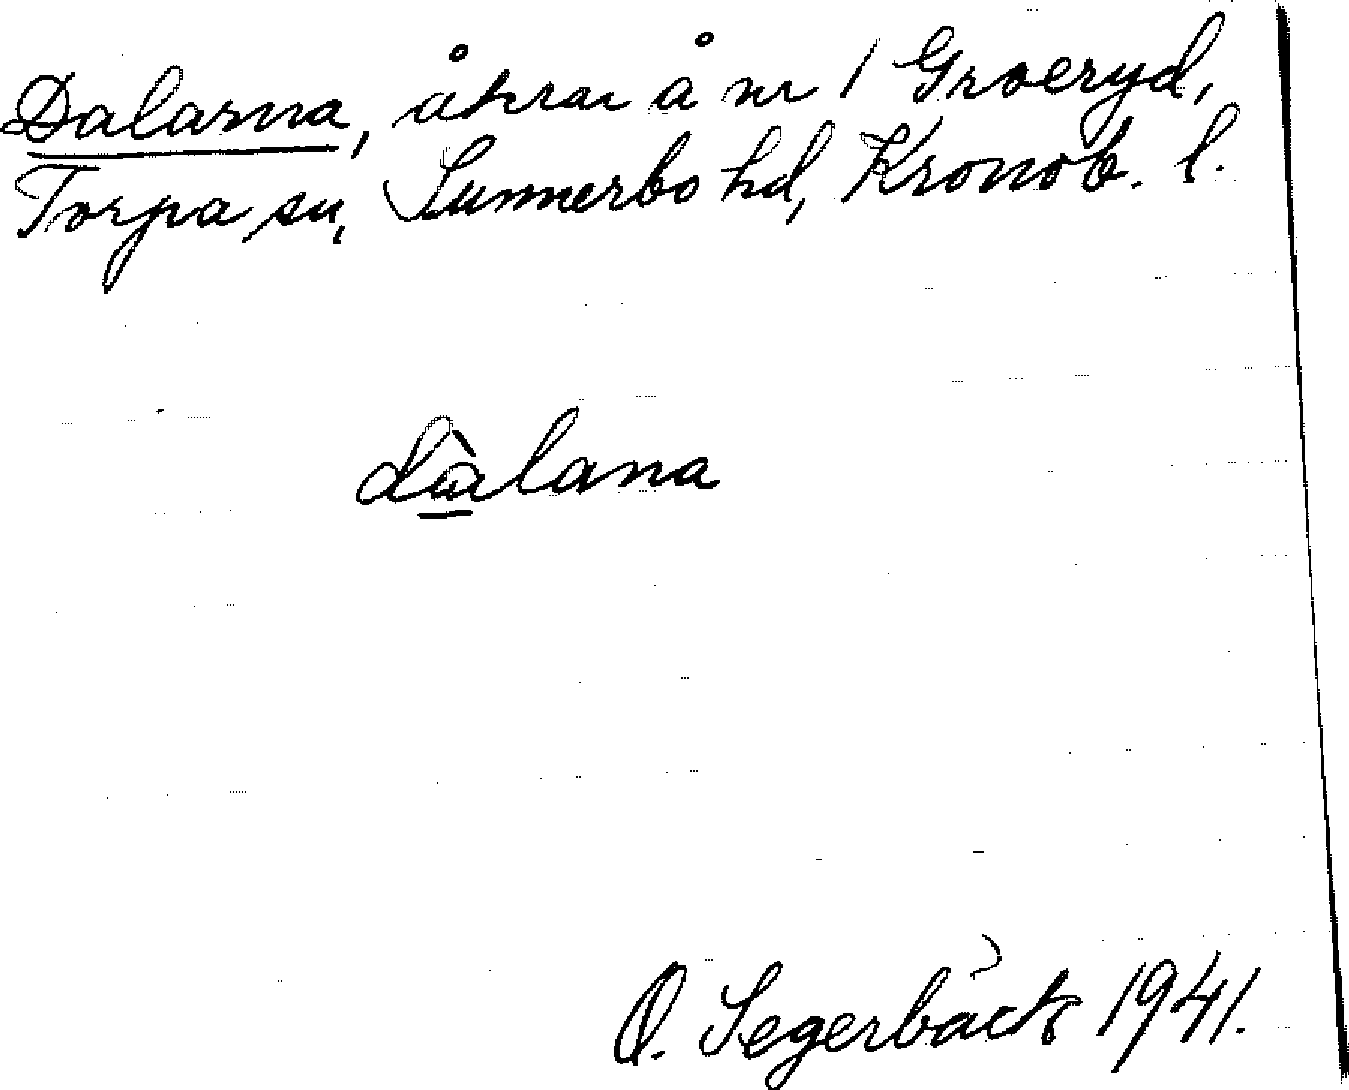 Dalarna, åkrar å nr 1 Groeryd,
Torpa sn, Sunnerbo hd, Kronob. l.
dàlana
O. Segerbäck 1941.